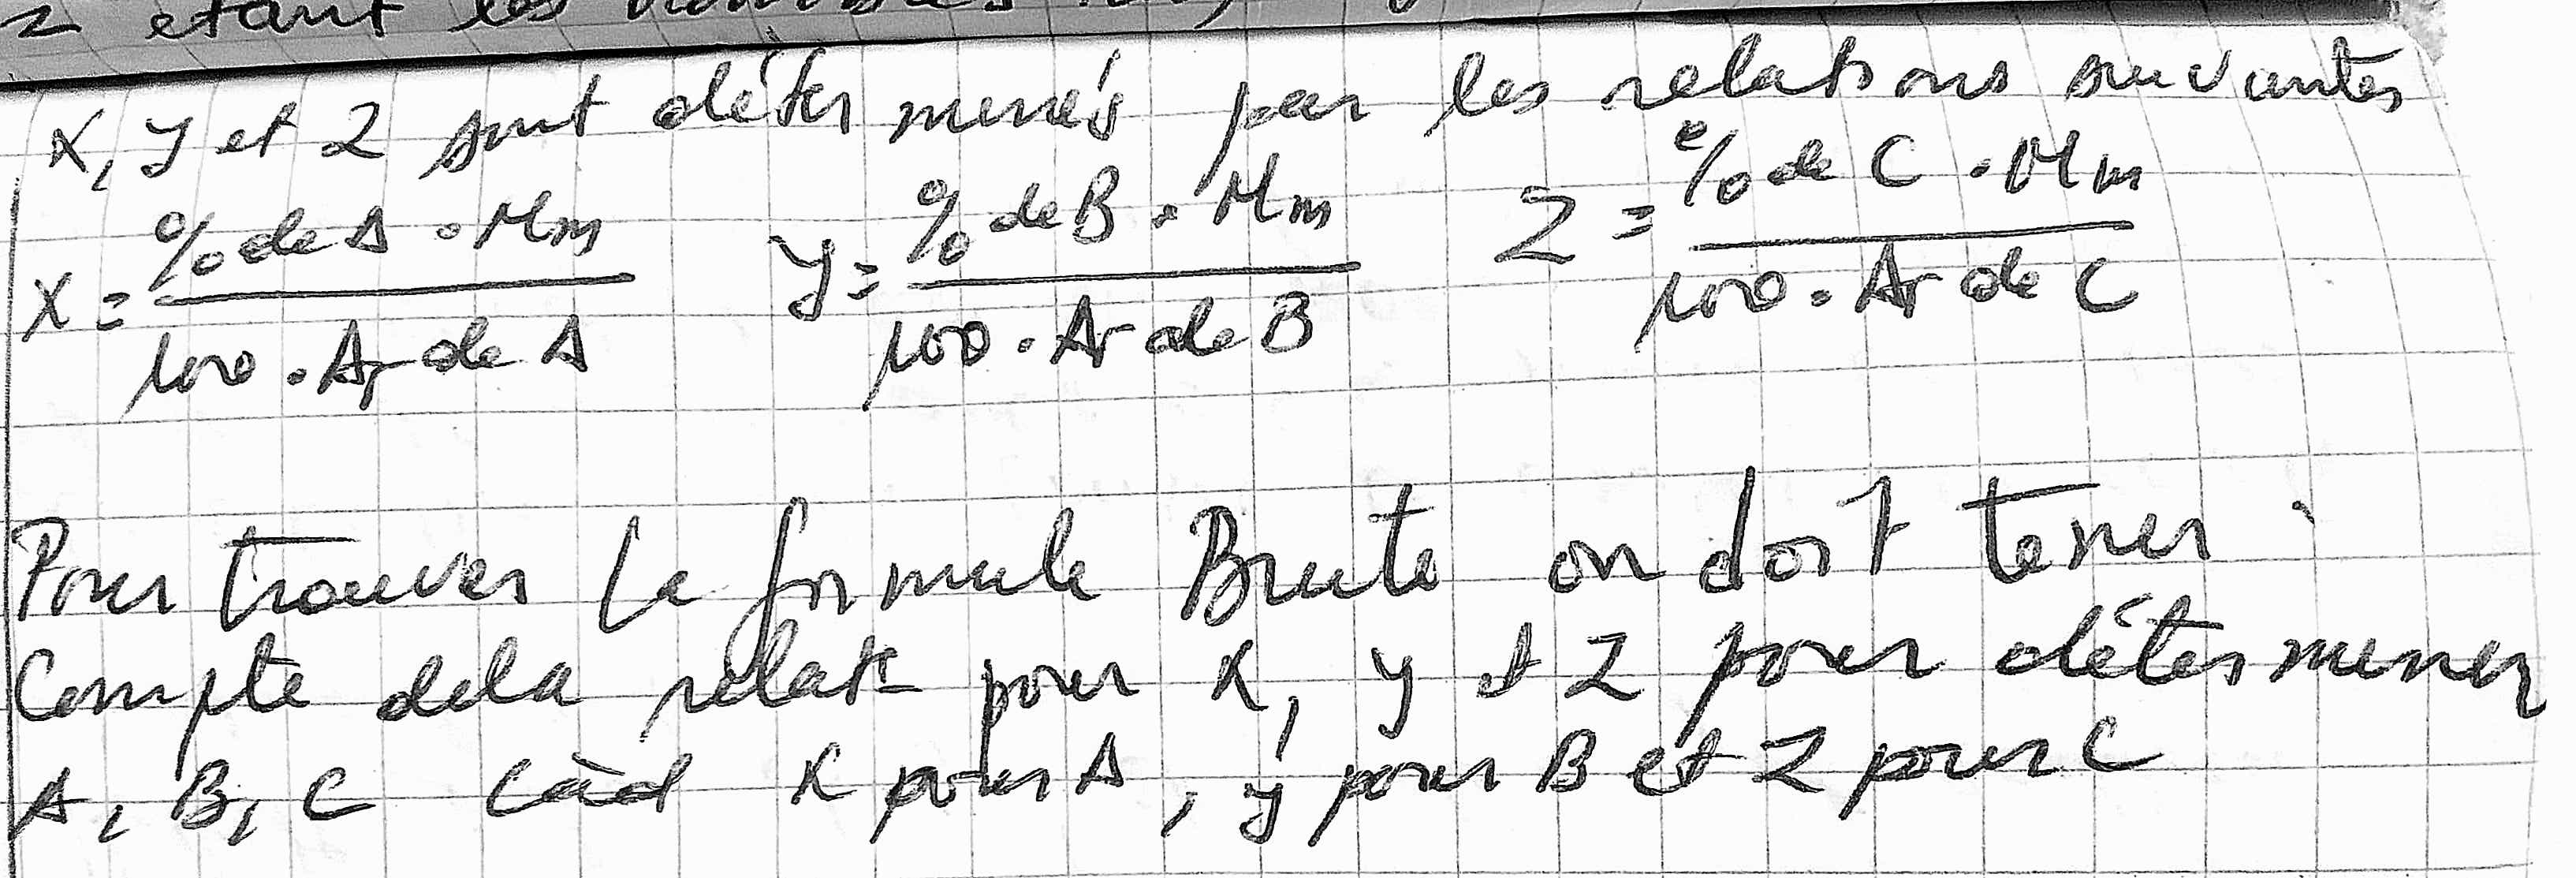 z étant les
x, y et z sont déterminés par les relations suivantes
x = % de A . Mm / 100 . Ar de A    y = % de B . Mm / 100 . Ar de B    z = % de C . Mm / 100 . Ar de C
Pour trouver la formule Brute on doit tenir
Compte de la relat° pour x, y et z pour déterminer
A, B, C càd x pour A, y pour B et z pour C